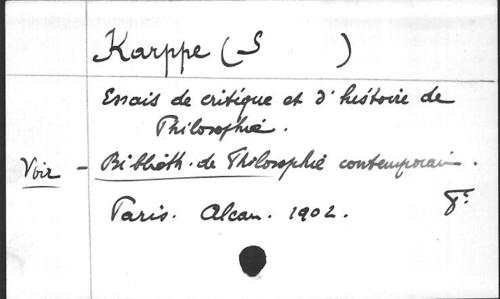 Karppe (S )
Essais de critique et d'histoire de
Philosophie.
Voir - Biblioth. de Philosophie contemporain.
Paris. Alcan. 1902. 8°